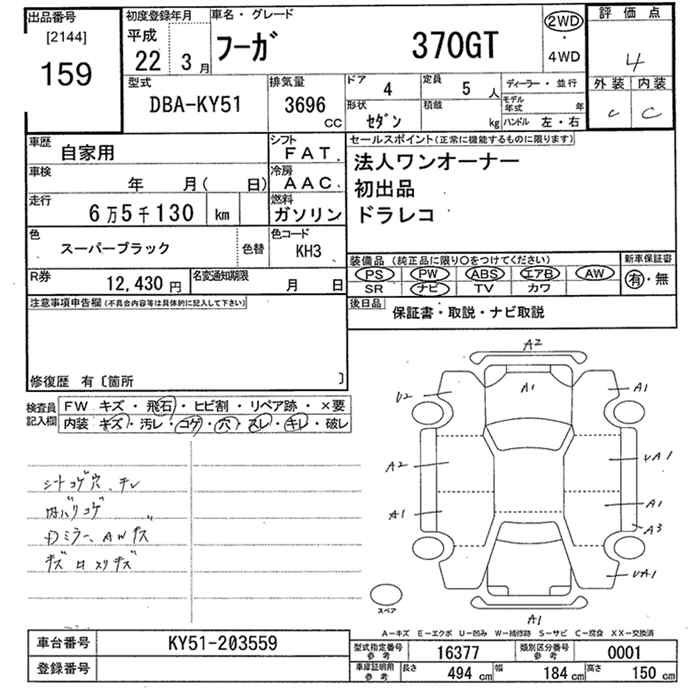 出品番号
[2144]
159
初度登録年月
平成
22 3 月
車名・グレード
フーガ 370GT
2WD
・
4WD
評価点
4
外装 内装
C C
型式
DBA-KY51
排気量
3696
CC
ドア
4
定員
5 人
形状
セダン
積載
kg
ディーラー・並行
モデル年式 年
ハンドル 左・右
車歴
自家用
シフト
FAT.
車検
年 月( 日)
冷房
AAC.
走行
6万5千130 km
燃料
ガソリン
色
スーパーブラック
色替
色コード
KH3
R券
12,430 円
名変通知期限
月 日
セールスポイント(正常に機能するものに限ります)
法人ワンオーナー
初出品
ドラレコ
装備品 (純正品に限り○をつけてください)
PS PW ABS エアB AW
SR ナビ TV カワ
新車保証書
有・無
後日品
保証書・取説・ナビ取説
注意事項申告欄(不具合内容等は具体的に記入して下さい)
修復歴 有〔箇所 〕
検査員記入欄
FW キズ・飛石・ヒビ割・リペア跡・×要
内装 キズ・汚レ・コゲ・穴・スレ・キレ・破レ
シートコゲ穴、チレ
内バリコゲ
Dミラー、AWキズ
キズ
A2
A1
U2
A1
A2
UA1
A1
A1
A3
UA1
A1
スペア
A-キズ E-エクボ U-凹み W-補修跡 S-サビ C-腐食 XX-交換済
車台番号
KY51-203559
登録番号
型式指定番号
参考
16377
類別区分番号
参考
0001
車庫証明用
参考
長さ
494 cm
幅
184 cm
高さ
150 cm